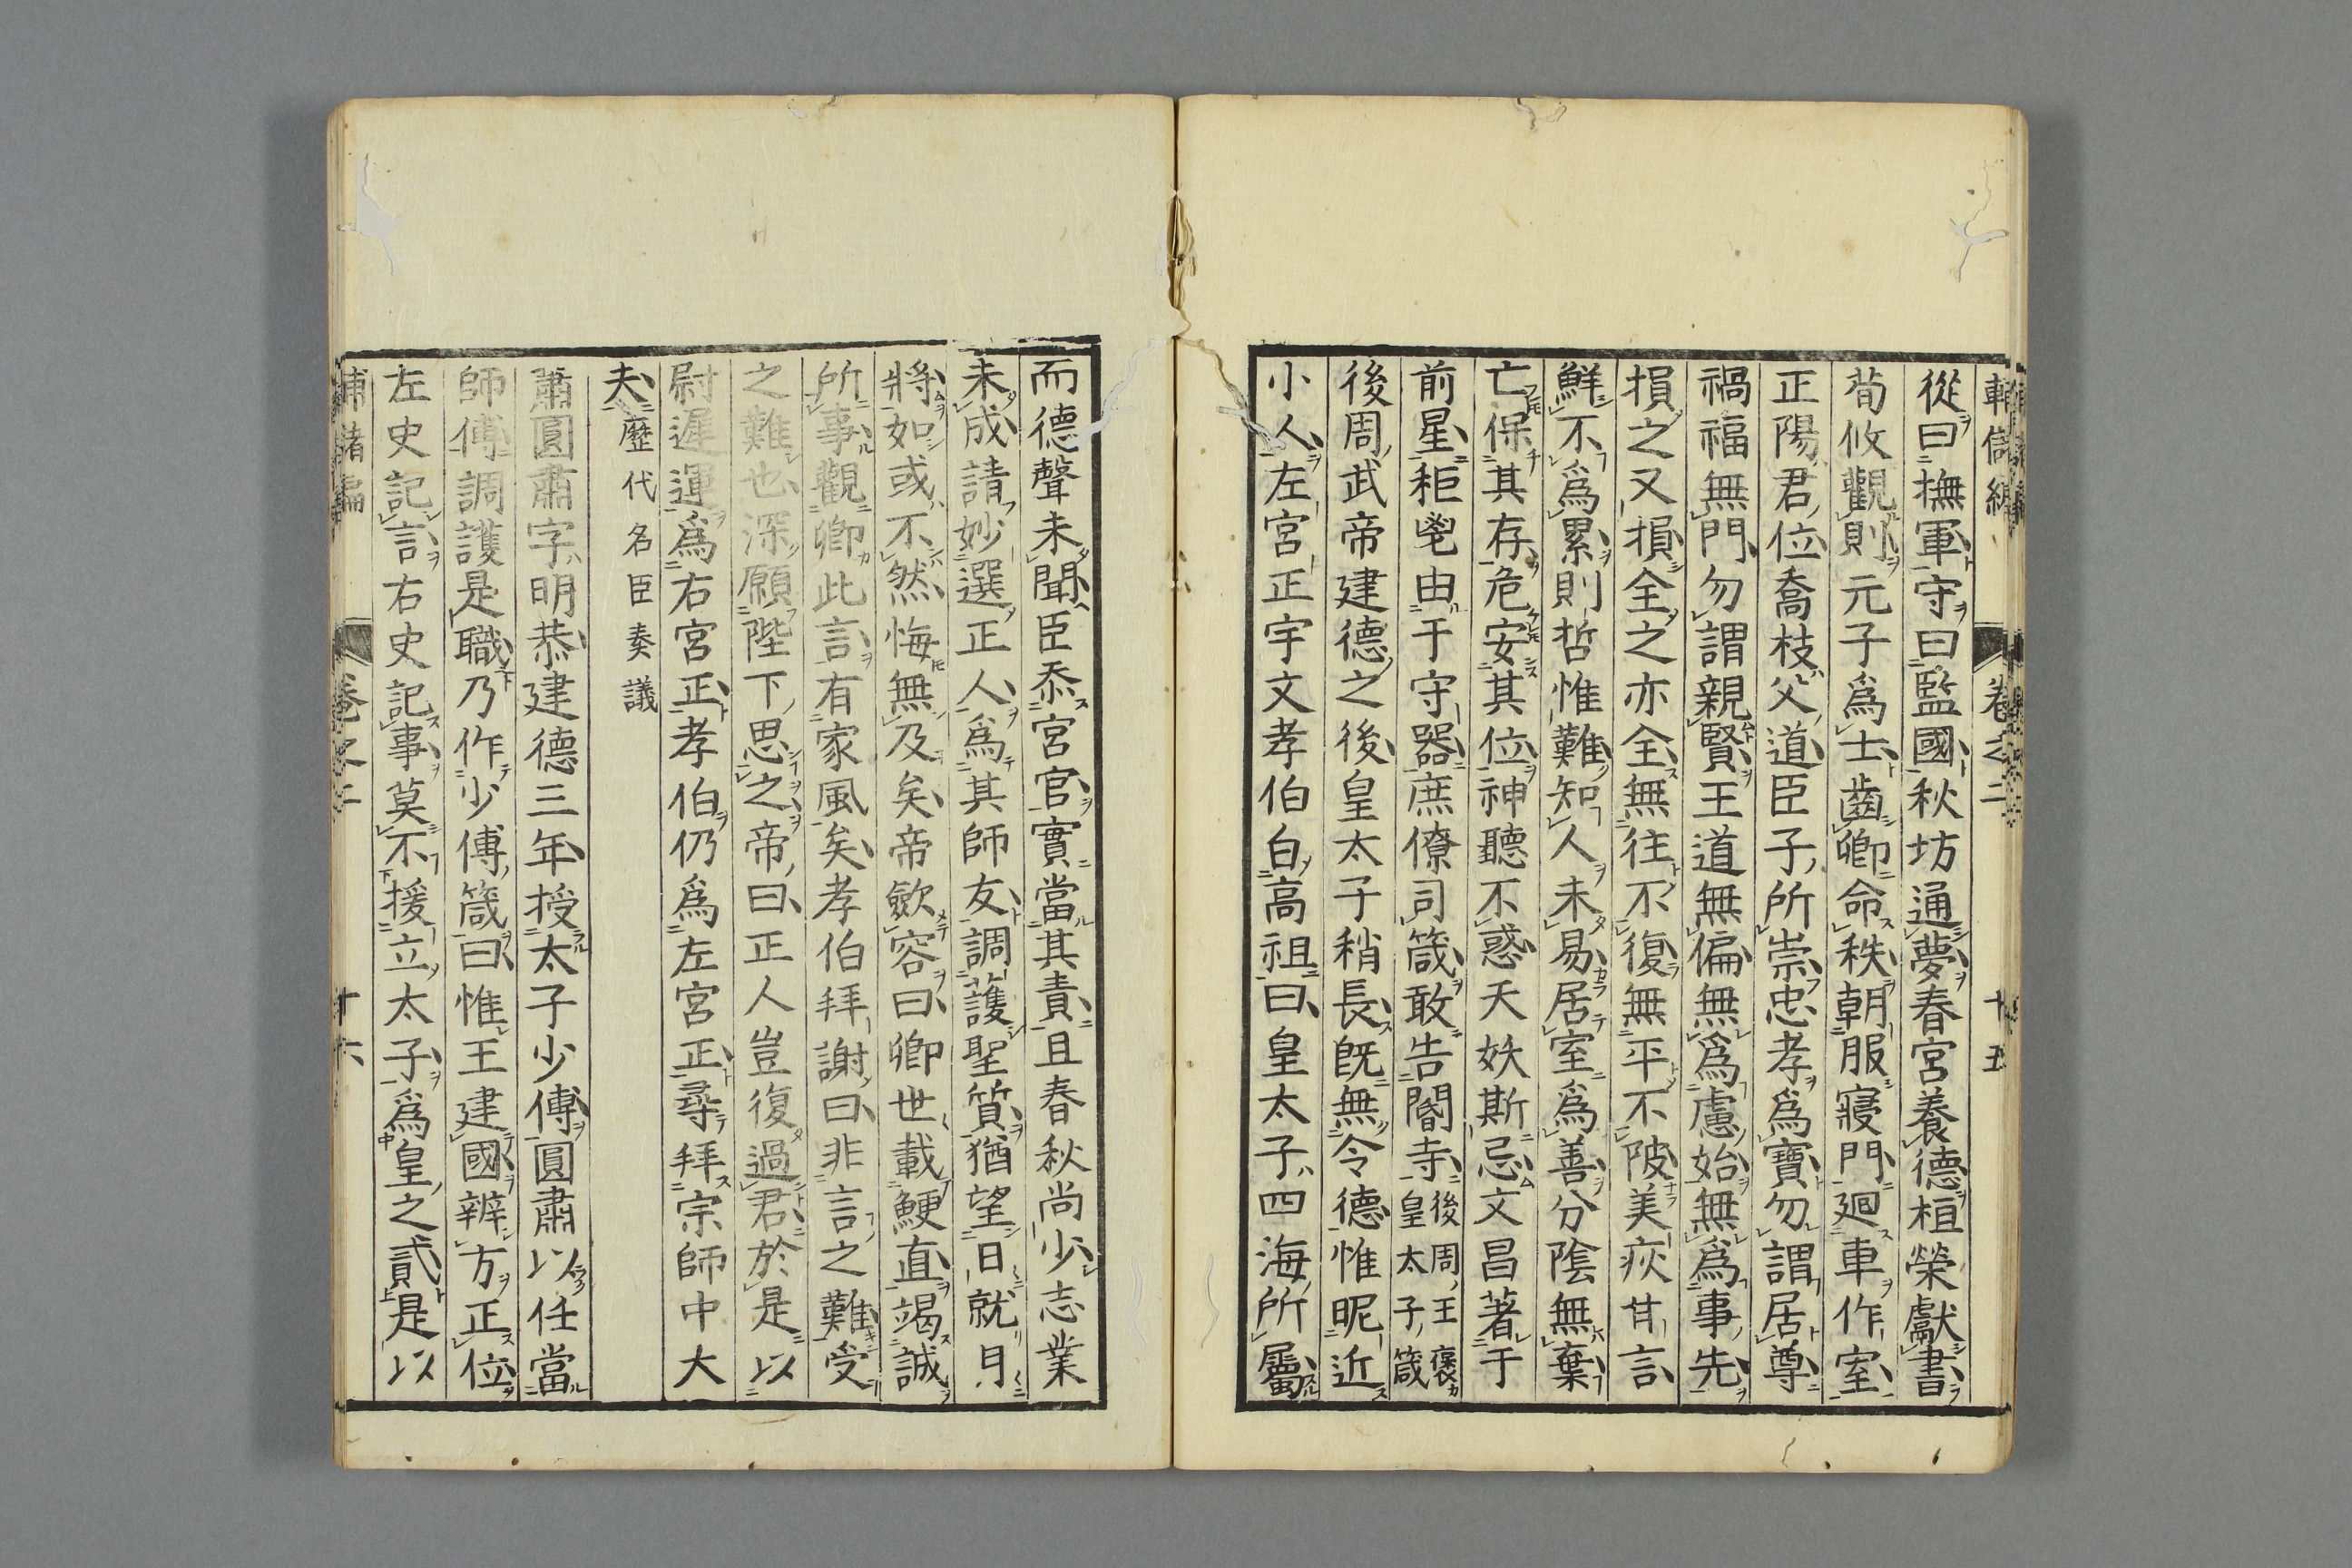 輔儲編 卷之二 十五
從曰撫軍守曰監國秋坊通夢春宮養德桓榮獻書
荀攸觀則元子爲士齒卿命秩朝服寢門廻車作室
正陽君位喬枝父道臣子所崇忠孝爲寶勿謂居尊
禍福無門勿謂親賢王道無偏無爲慮始無爲事先
損之又損全之亦全無往不復無平不陂美疢甘言
鮮不爲累則哲惟難知人未易居室爲善分陰無棄
亡保其存危安其位神聽不惑天妖斯忌文昌著于
前星秬鬯由于守器庶僚司箴敢告閽寺後周王褒皇太子箴
後周武帝建德之後皇太子稍長旣無令德惟昵近
小人左宮正宇文孝伯白高祖曰皇太子四海所屬
而德聲未聞臣忝宮官實當其責且春秋尚少志業
未成請妙選正人爲其師友調護聖質猶望日就月
將如或不然悔無及矣帝歛容曰卿世載鯁直竭誠
所事觀卿此言有家風矣孝伯拜謝曰非言之難受
之難也深願陛下思之帝曰正人豈復過君於是以
尉遲運爲右宮正孝伯仍爲左宮正尋拜宗師中大
夫歷代名臣奏議
蕭圓肅字明恭建德三年授太子少傅圓肅以任當
師傅調護是職乃作少傅箴曰惟王建國辨方正位
左史記言右史記事莫不援立太子爲皇之貳是以
輔諸編 卷之二 十六